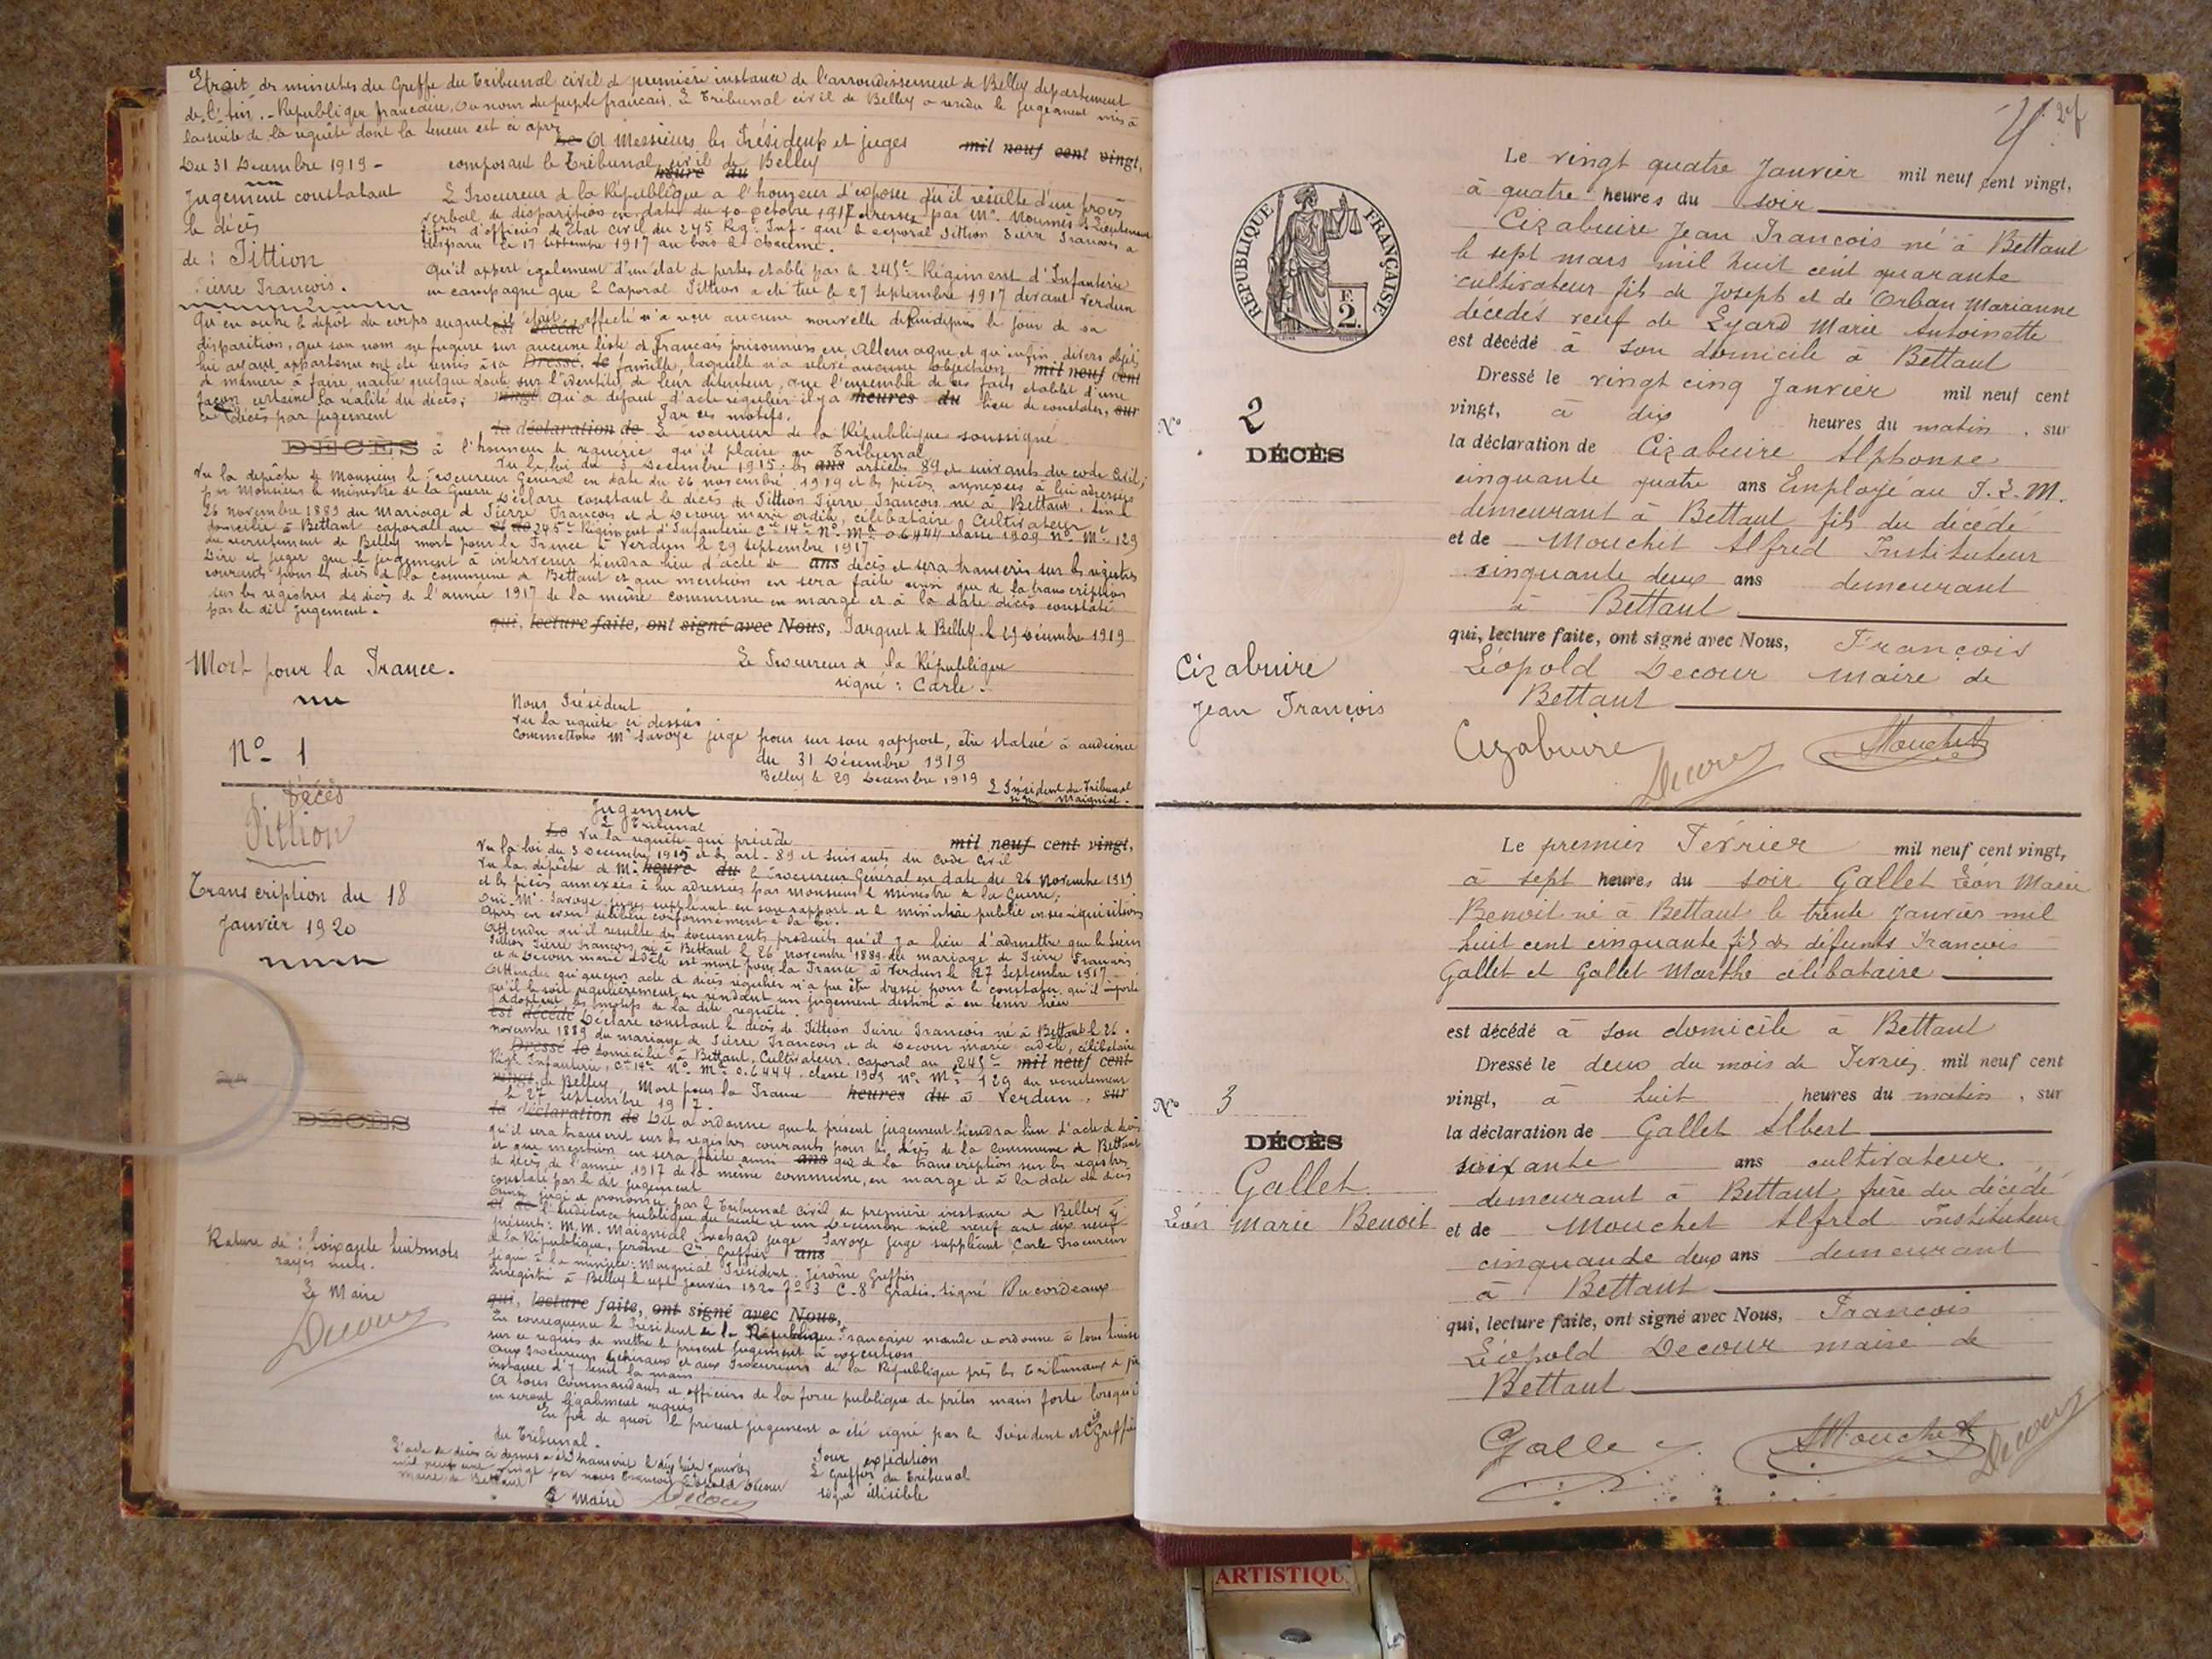 Etrait des minutes du Greffe du Tribunal civil de première instance de l'arrondissement de Belley département
de l'Ain. - République française. Au nom du peuple français. Le Tribunal civil de Belley a rendu le jugement mis à
la suite de la requête dont la teneur est ci après
Le A Messieurs les Présidents et juges mil neuf cent vingt,
Du 31 Décembre 1919 - composant le Tribunal civil de Belley
heure du
Jugement constatant
le décès
de : Pittion
Pierre François.
Le Procureur de la République a l'honneur d'exposer qu'il résulte d'un procès
verbal de disparition en date du 10 octobre 1917 dressé par Mr. Lieutenant
d'officier de Etat civil du 245 Reg. Inf. que le caporal Pittion Pierre François a
disparu le 17 Septembre 1917 au bois le Chaume.
Qu'il appert également d'un état de pertes établi par le 245e Régiment d'Infanterie
en campagne que le Caporal Pittion a été tué le 27 Septembre 1917 devant Verdun
Qu'en outre le dépôt du corps auquel il était affecté n'a reçu aucune nouvelle depuis le jour de sa
disparition, que son nom ne figure sur aucune liste de français prisonniers en Allemagne et qu'enfin divers objets
lui ayant appartenu ont été remis à sa Dressé le famille, laquelle n'a élevé aucune objection, mil neuf cent
de manière à faire naître quelque doute sur l'identité de leur détenteur, que l'ensemble de ces faits établit d'une
façon certaine la réalité du décès; vingt Qu'à défaut d'acte régulier il y a heures du lieu de constater, sur
ce décès par jugement
Par ces motifs.
la déclaration de Le Procureur de la République soussigné
DÉCÈS à l'honneur de requérir qu'il plaise au Tribunal
Vu la loi du 3 Décembre 1915 les ans articles 89 et suivants du code Civil,
Vu la dépêche de Monsieur le Procureur Général en date du 26 novembre 1919 et les pièces annexées à lui adressées
par Monsieur le ministre de la Guerre Déclare constant le décès de Pittion Pierre François né à Bettant, Ain le
26 novembre 1889 du mariage de Pierre François et de Decour marie adèle, célibataire Cultivateur
domicilié à Bettant caporal au et de 245e Régiment d'Infanterie Cie 14e No. Mle 06444 classe 1909 No. Mle 129
du recrutement de Belley mort pour la France à Verdun le 29 Septembre 1917
Dire et juger que le jugement à intervenir tiendra lieu d'acte de ans décès et sera transcris sur les registres
courants pour les décès de la commune de Bettant et que mention en sera faite ainsi que de la transcription
sur les registres des décès de l'année 1917 de la même commune en marge et à la date décès constaté
par le dit jugement.
qui, lecture faite, ont signé avec Nous, Parquet de Belley le 29 Décembre 1919
Mort pour la France.
Le Procureur de la République
signé : Carle.
Nous Président
Vu la requête ci dessus
Commettons Mr Savoye juge pour sur son rapport, être statué à audience
du 31 Décembre 1919
Belley le 29 Décembre 1919
Le Président du Tribunal
signé Maignial.
No 1
Décès
Pittion
Transcription du 18
Janvier 1920
Jugement
Le Tribunal
Le Vu la requête qui précède mil neuf cent vingt,
Vu la loi du 3 Décembre 1915 et les art. 89 et suivants du Code Civil
Vu la dépêche de Mr heure du le Procureur Général en date du 26 Novembre 1919
et les pièces annexées à lui adressées par Monsieur le Ministre de la Guerre,
Oui Mr. Savoye juge suppléant en son rapport et le ministère public en ses réquisitions
Après en avoir délibéré conformément à la loi.
Attendu qu'il resulte des documents produits qu'il y a lieu d'admettre que le Sieur
Pittion Pierre François, né à Bettant le 26 novembre 1889 du mariage de Pierre François
et de Decour marie Adèle est mort pour la France à Verdun le 27 Septembre 1917
Attendu qu'aucun acte de décès régulier n'a pu être dressé pour le constater, qu'il importe
qu'il le soit régulièrement en rendant un jugement destiné à en tenir lieu
Adoptant les motifs de la dite requête.
est décédé Déclare constant le décès de Pittion Pierre François né à Bettant le 26
novembre 1889 du mariage de Pierre François et de Decour marie adèle, célibataire
Dressé le domicilié à Bettant, Cultivateur, caporal au 245e mil neuf cent
Régt. Infanterie, Cie 14e No. Mle 06444, classe 1909 No. Mle 129 du recrutement
vingt de Belley, Mort pour la France heures du à Verdun, sur
le 27 Septembre 1917.
la déclaration de Dit a ordonné que le présent jugement tiendra lieu d'acte de décès
qu'il sera transcrit sur les registres courants pour les décès de la Commune de Bettant
et que mention en sera faite ainsi ans que de la transcription sur les registres
DÉCÈS
de décès de l'année 1917 de la même commune, en marge et à la date du décès
constaté par le dit jugement
Ainsi jugé et prononcé par le Tribunal Civil de première instance de Belley à
et de l'audience publique du trente et un Décembre mil neuf cent dix neuf
présents : M.M. Maignial juge Savoye juge suppléant Carle Procureur
de la République, Jérôme Greffier ans
Signé à la minute : Maignial Président. Jérôme Greffier
Enregistré à Belley le sept Janvier 1920 Fo 3 C. 8 Gratis. signé Ducordeaux
qui, lecture faite, ont signé avec Nous,
Rature de : Soixante huit mots
rayés nuls.
Le Maire
Decour
En conséquence le Président de la République Française mande et ordonne à tous huissiers
sur ce requis de mettre le présent jugement à exécution
Aux Procureurs Généraux et aux Procureurs de la République près les Tribunaux de 1re
instance d'y tenir la main
A tous Commandants et officiers de la force publique de prêter main forte lorsqu'ils
en seront légalement requis
En foi de quoi le présent jugement a été signé par le Président et le Greffier
du Tribunal.
L'acte de décès ci dessus a été transcrit le dix huit janvier
mil neuf cent vingt par nous François Léopold Decour
Maire de Bettant
Le Maire Decour
Pour expédition
Le Greffier du Tribunal
signé illisible
2 ef
RÉPUBLIQUE FRANÇAISE
F.
2.
No 2
DÉCÈS
Cizabuire
Jean François
Le vingt quatre Janvier mil neuf cent vingt,
à quatre heures du soir
Cizabuire Jean François né à Bettant
le sept mars mil huit cent quarante
cultivateur fils de Joseph et de Orban Marianne
décédés veuf de Eyard Marie Antoinette
est décédé à son domicile à Bettant
Dressé le vingt cinq Janvier mil neuf cent
vingt, à dix heures du matin, sur
la déclaration de Cizabuire Alphonse
cinquante quatre ans Employé au P.L.M.
demeurant à Bettant fils du décédé
et de Mouchet Alfred Instituteur
cinquante deux ans demeurant
à Bettant
qui, lecture faite, ont signé avec Nous, François
Léopold Decour maire de
Bettant
Cizabuire Decour Mouchet
No 3
DÉCÈS
Gallet
Léon Marie Benoit
Le premier Février mil neuf cent vingt,
à sept heures du soir Gallet Léon Marie
Benoit né à Bettant le trente Janvier mil
huit cent cinquante fils des défunts François
Gallet et Gallet Marthe célibataire
est décédé à son domicile à Bettant
Dressé le deux du mois de Fevrier mil neuf cent
vingt, à huit heures du matin, sur
la déclaration de Gallet Albert
soixante ans cultivateur.
demeurant à Bettant, frère du décédé
et de Mouchet Alfred Instituteur
cinquante deux ans demeurant
à Bettant
qui, lecture faite, ont signé avec Nous, François
Léopold Decour maire de
Bettant
Gallet Mouchet Decour
ARTISTIQU